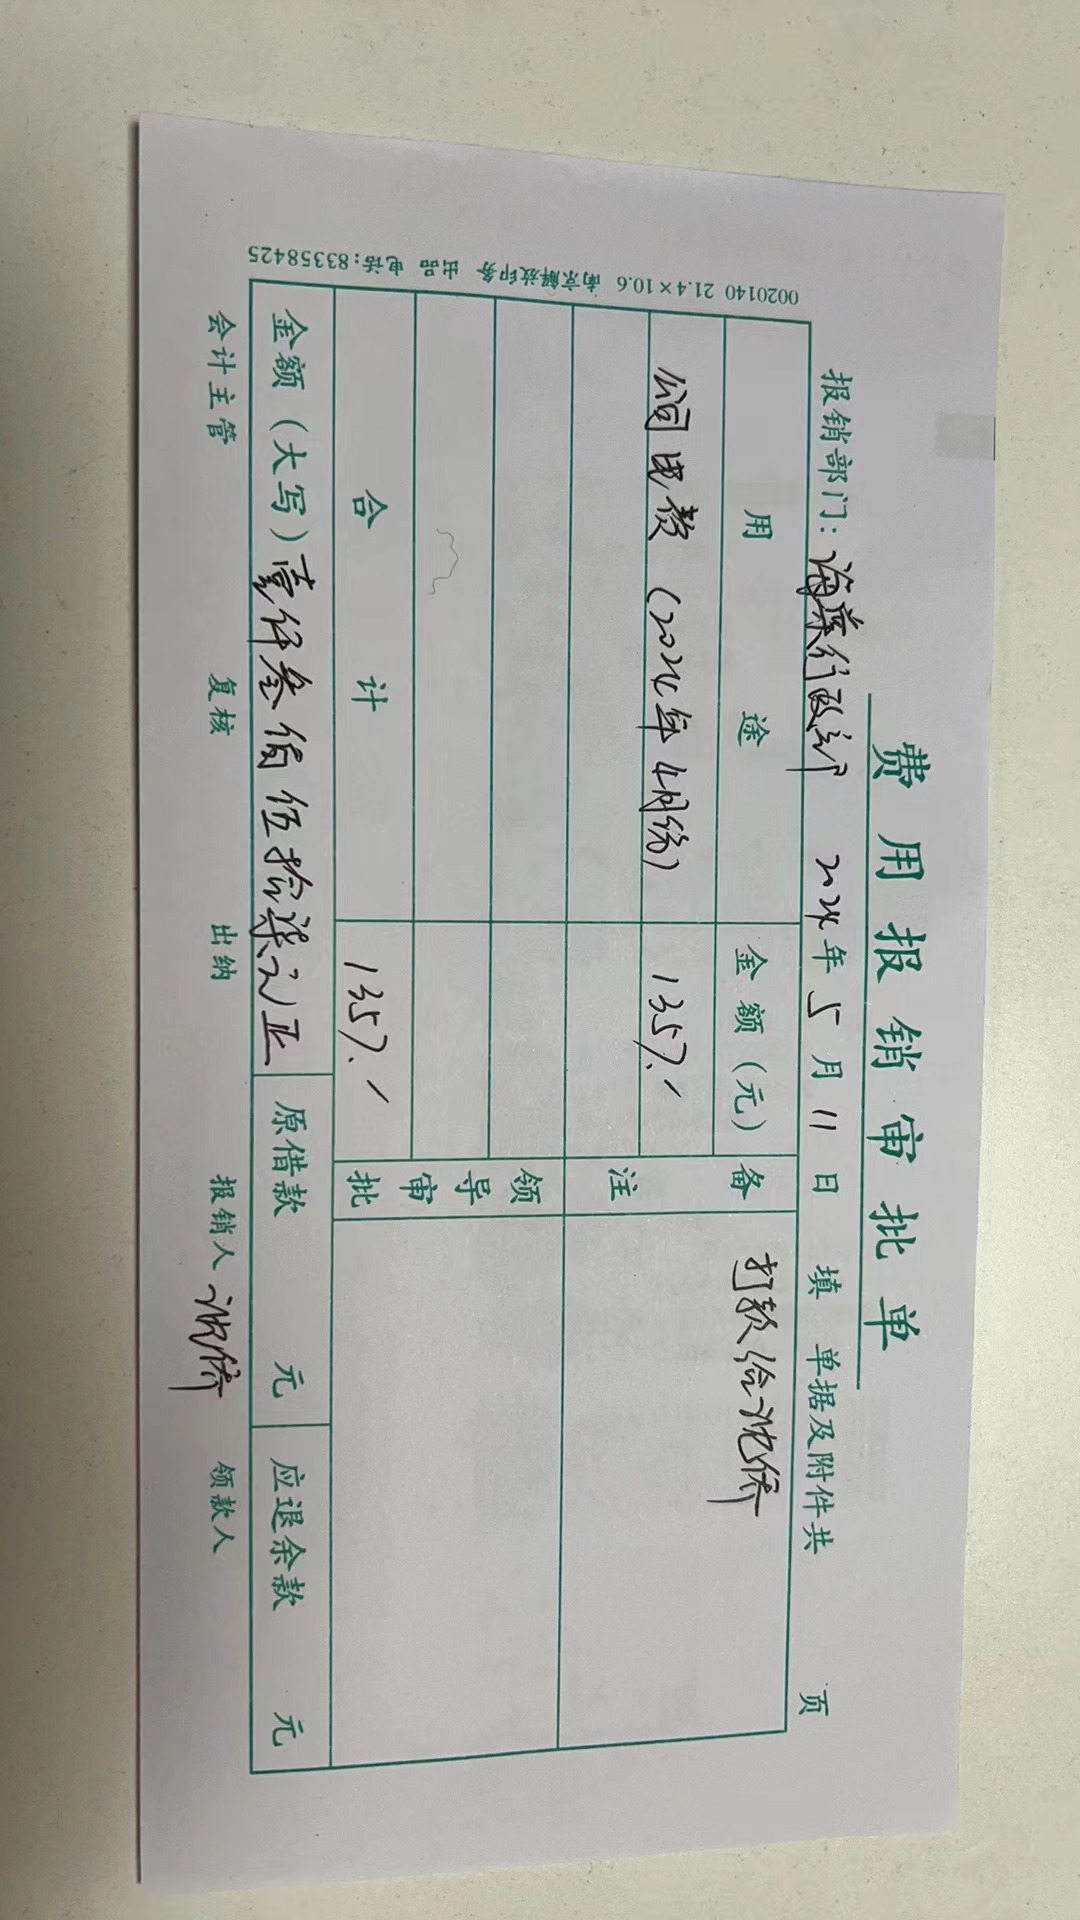 费用报销审批单
报销部门：海蒂行政部 2024年5月11日填 单据及附件共 页
用途 金额（元） 备注 打款给沈侨
公司电费（2024年4月份） 1357.-
领导审批
合计 1357.-
金额（大写）壹仟叁佰伍拾柒元正 原借款 元 应退余款 元
会计主管 复核 出纳 报销人 沈侨 领款人
0020140 21.4×10.6 南京解放印务 出品 电话：83358425